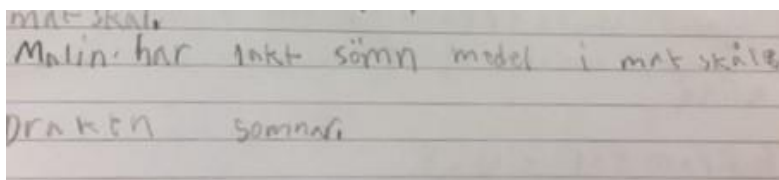 mat skål.
Malin har lakt sömn medel i mat skåle
Draken somnar.